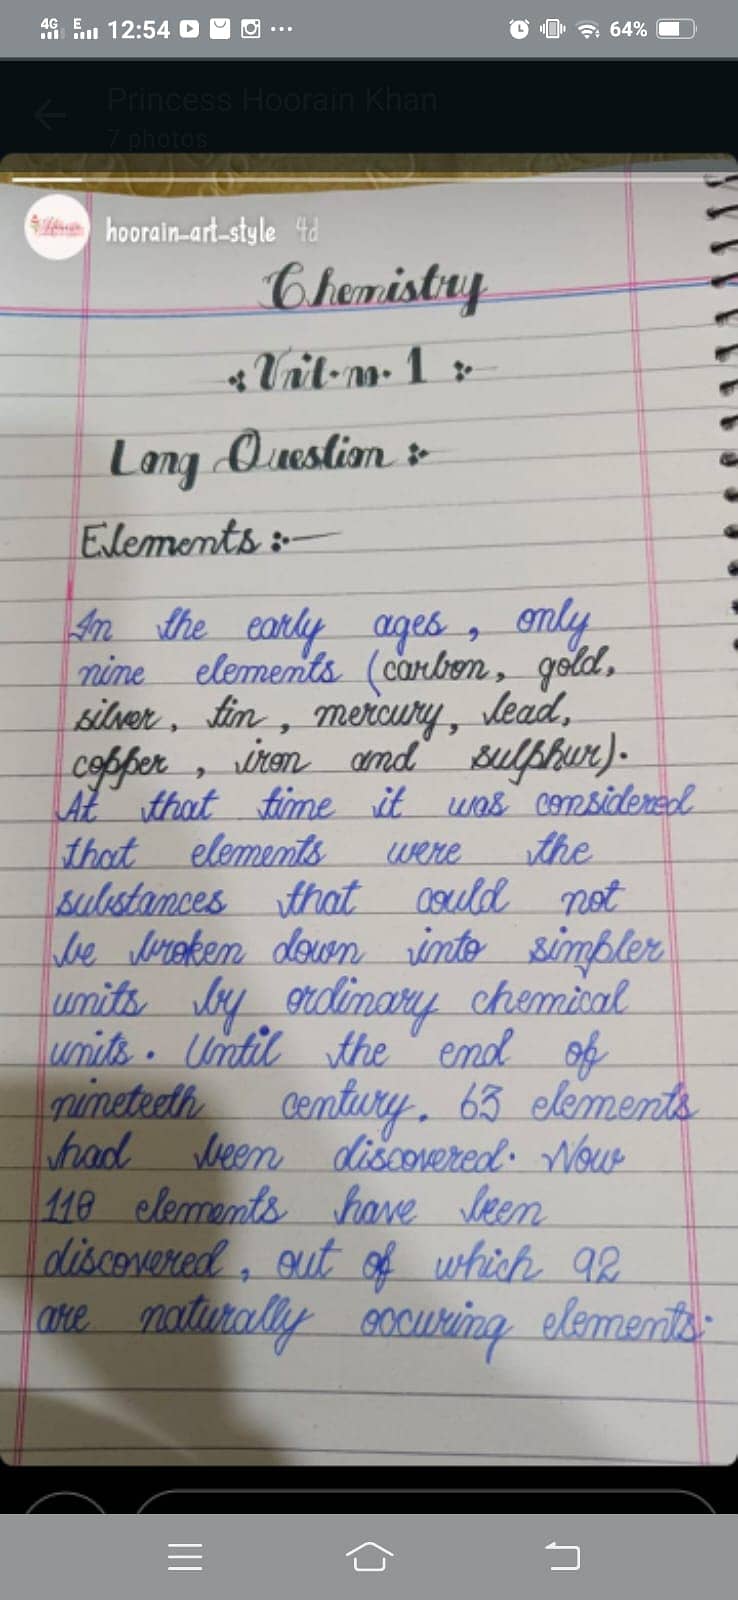 4G E 12:54 64%
Princess Hoorain Khan
7 photos
hoorain_art_style 4d
Chemistry
Unit-no. 1
Long Question :-
Elements :-
In the early ages, only
nine elements (carbon, gold,
silver, tin, mercury, lead,
copper, iron and sulphur).
At that time it was considered
that elements were the
substances that could not
be broken down into simpler
units by ordinary chemical
units. Until the end of
nineteeth century. 63 elements
had been discovered. Now
118 elements have been
discovered, out of which 92
are naturally occuring elements.